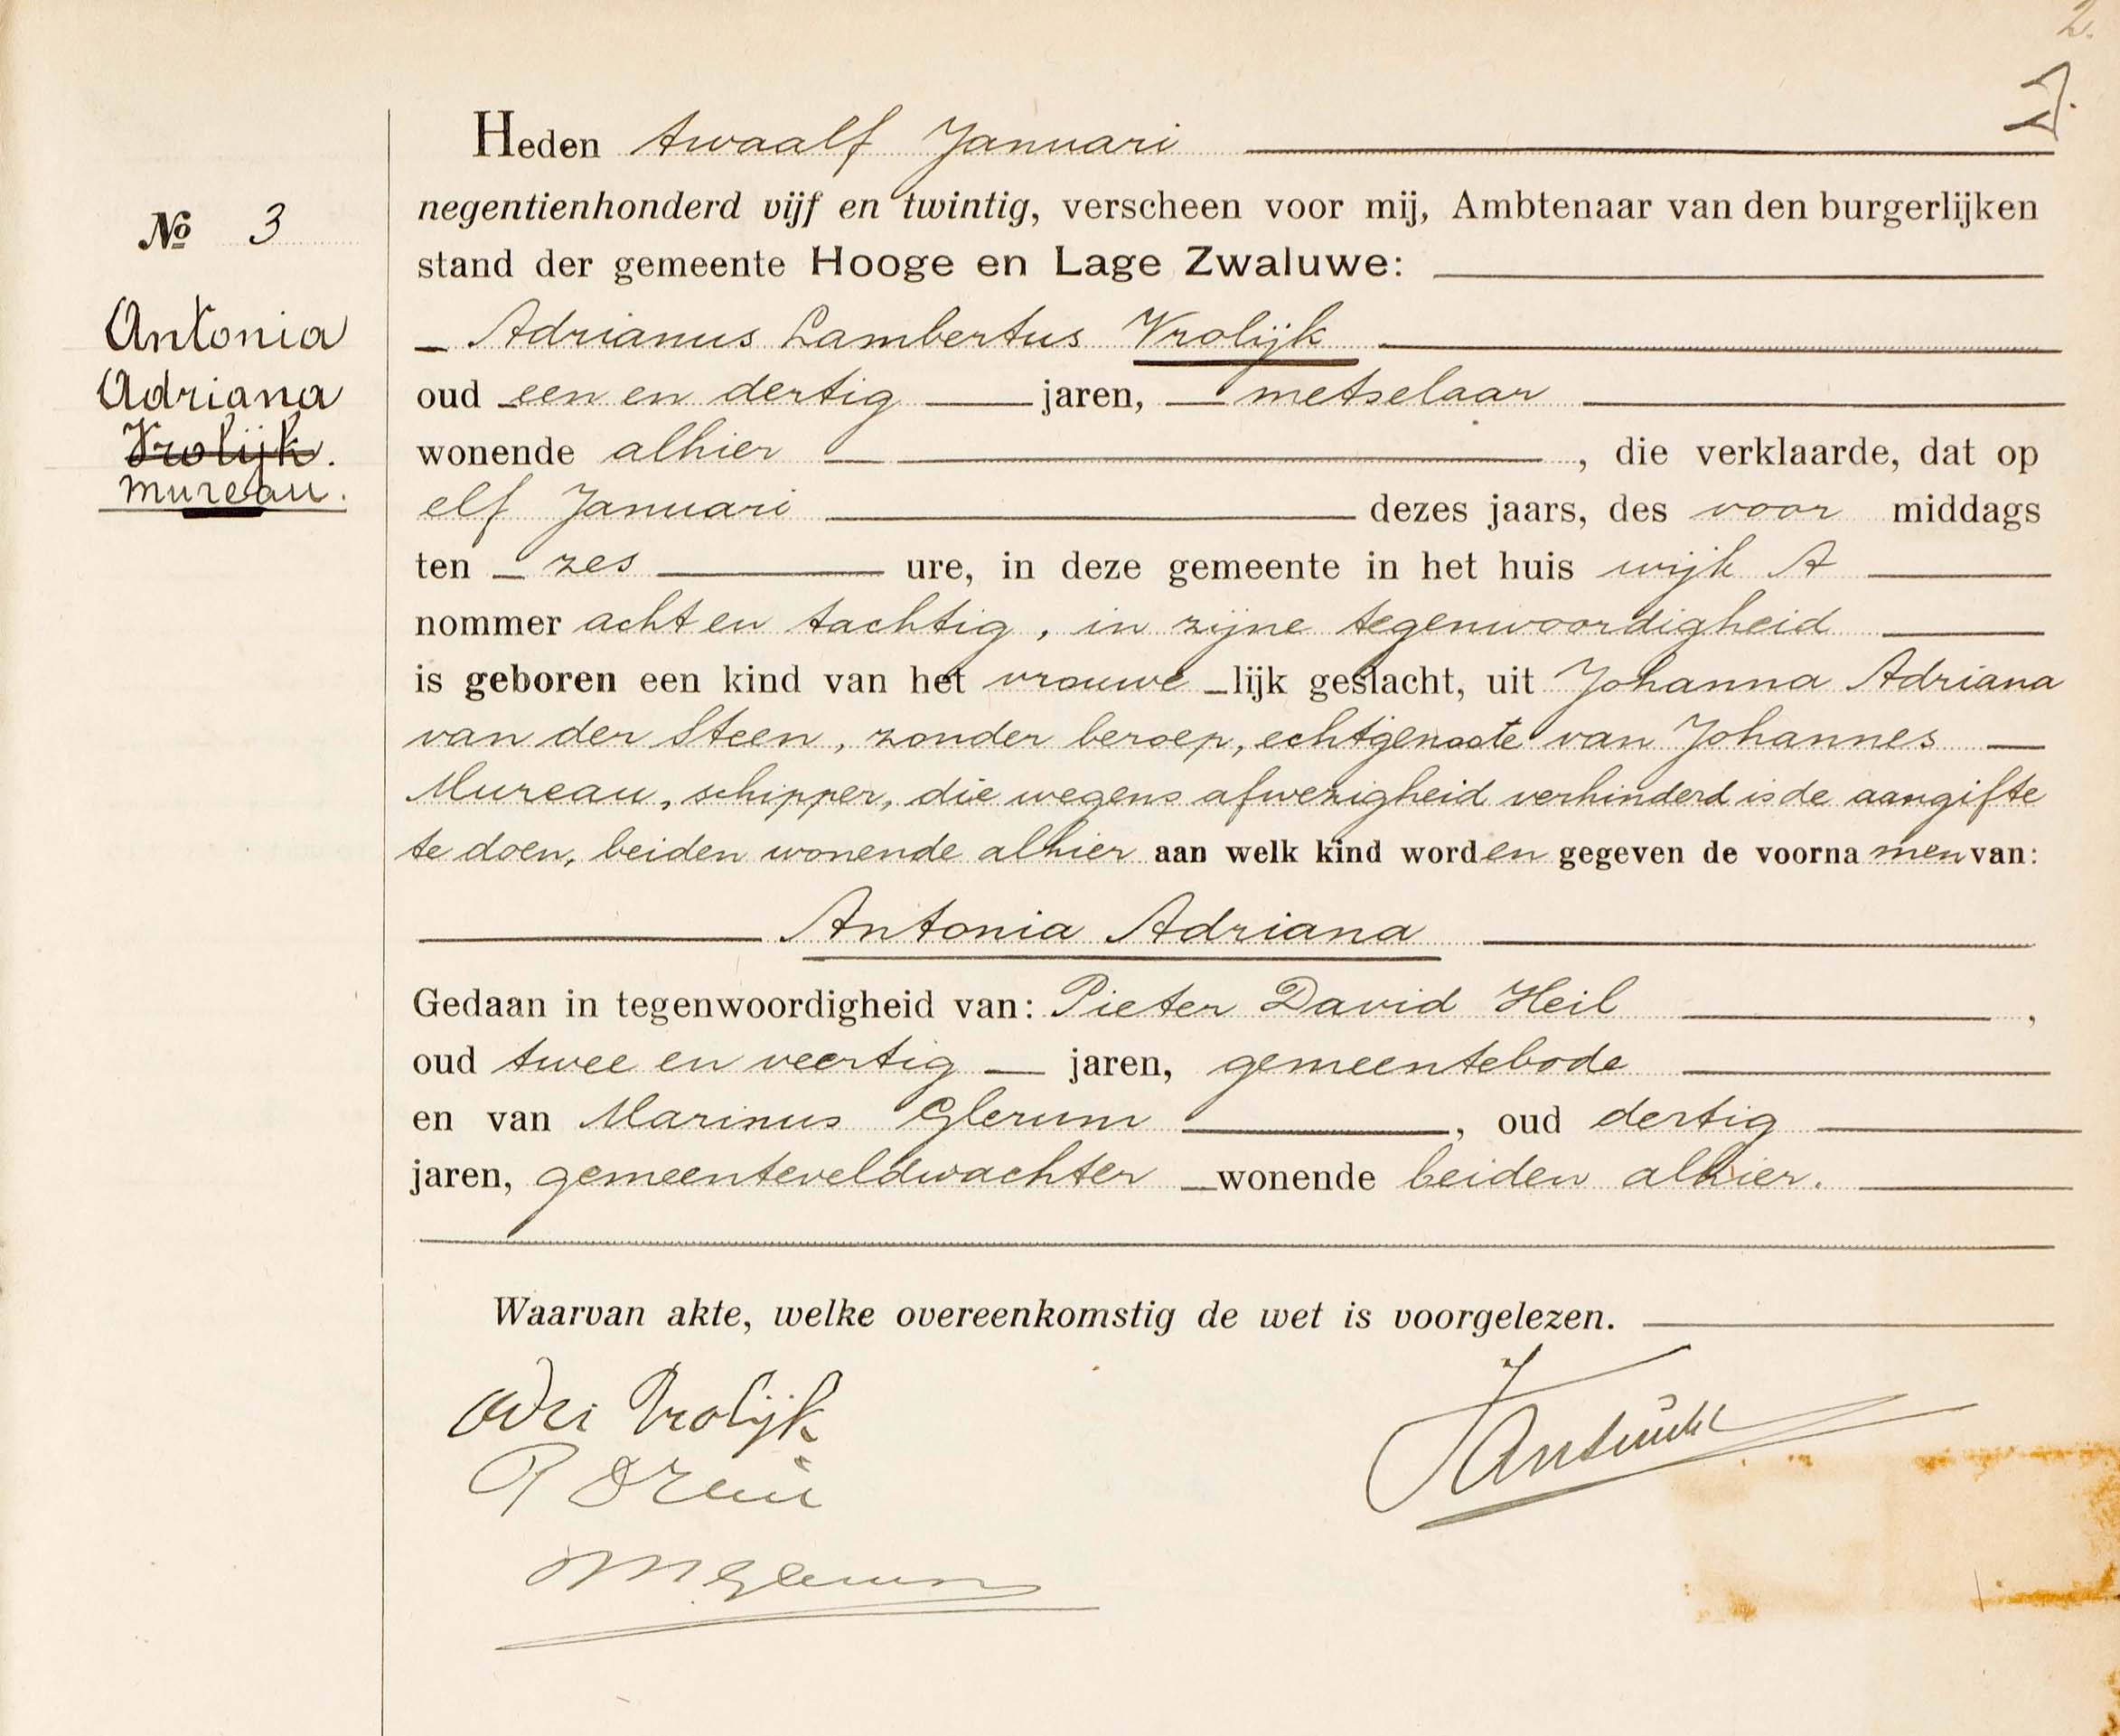 2.
Heden twaalf Januari
negentienhonderd vijf en twintig, verscheen voor mij, Ambtenaar van den burgerlijken
No 3
stand der gemeente Hooge en Lage Zwaluwe:
Antonia
Adriana
Vrolijk.
Mureau.
Adrianus Lambertus Vrolijk
oud een en dertig jaren, metselaar
wonende alhier , die verklaarde, dat op
elf Januari dezes jaars, des voor middags
ten zes ure, in deze gemeente in het huis wijk A
nommer acht en tachtig, in zijne tegenwoordigheid
is geboren een kind van het vrouwe lijk geslacht, uit Johanna Adriana
van der Steen, zonder beroep, echtgenoote van Johannes
Mureau, schipper, die wegens afwezigheid verhinderd is de aangifte
te doen, beiden wonende alhier aan welk kind worden gegeven de voornamen van:
Antonia Adriana
Gedaan in tegenwoordigheid van: Pieter David Heil ,
oud twee en veertig jaren, gemeentebode
en van Marinus Glerum , oud dertig
jaren, gemeenteveldwachter wonende beiden alhier.
Waarvan akte, welke overeenkomstig de wet is voorgelezen.
Adri Vrolijk
M Glerum